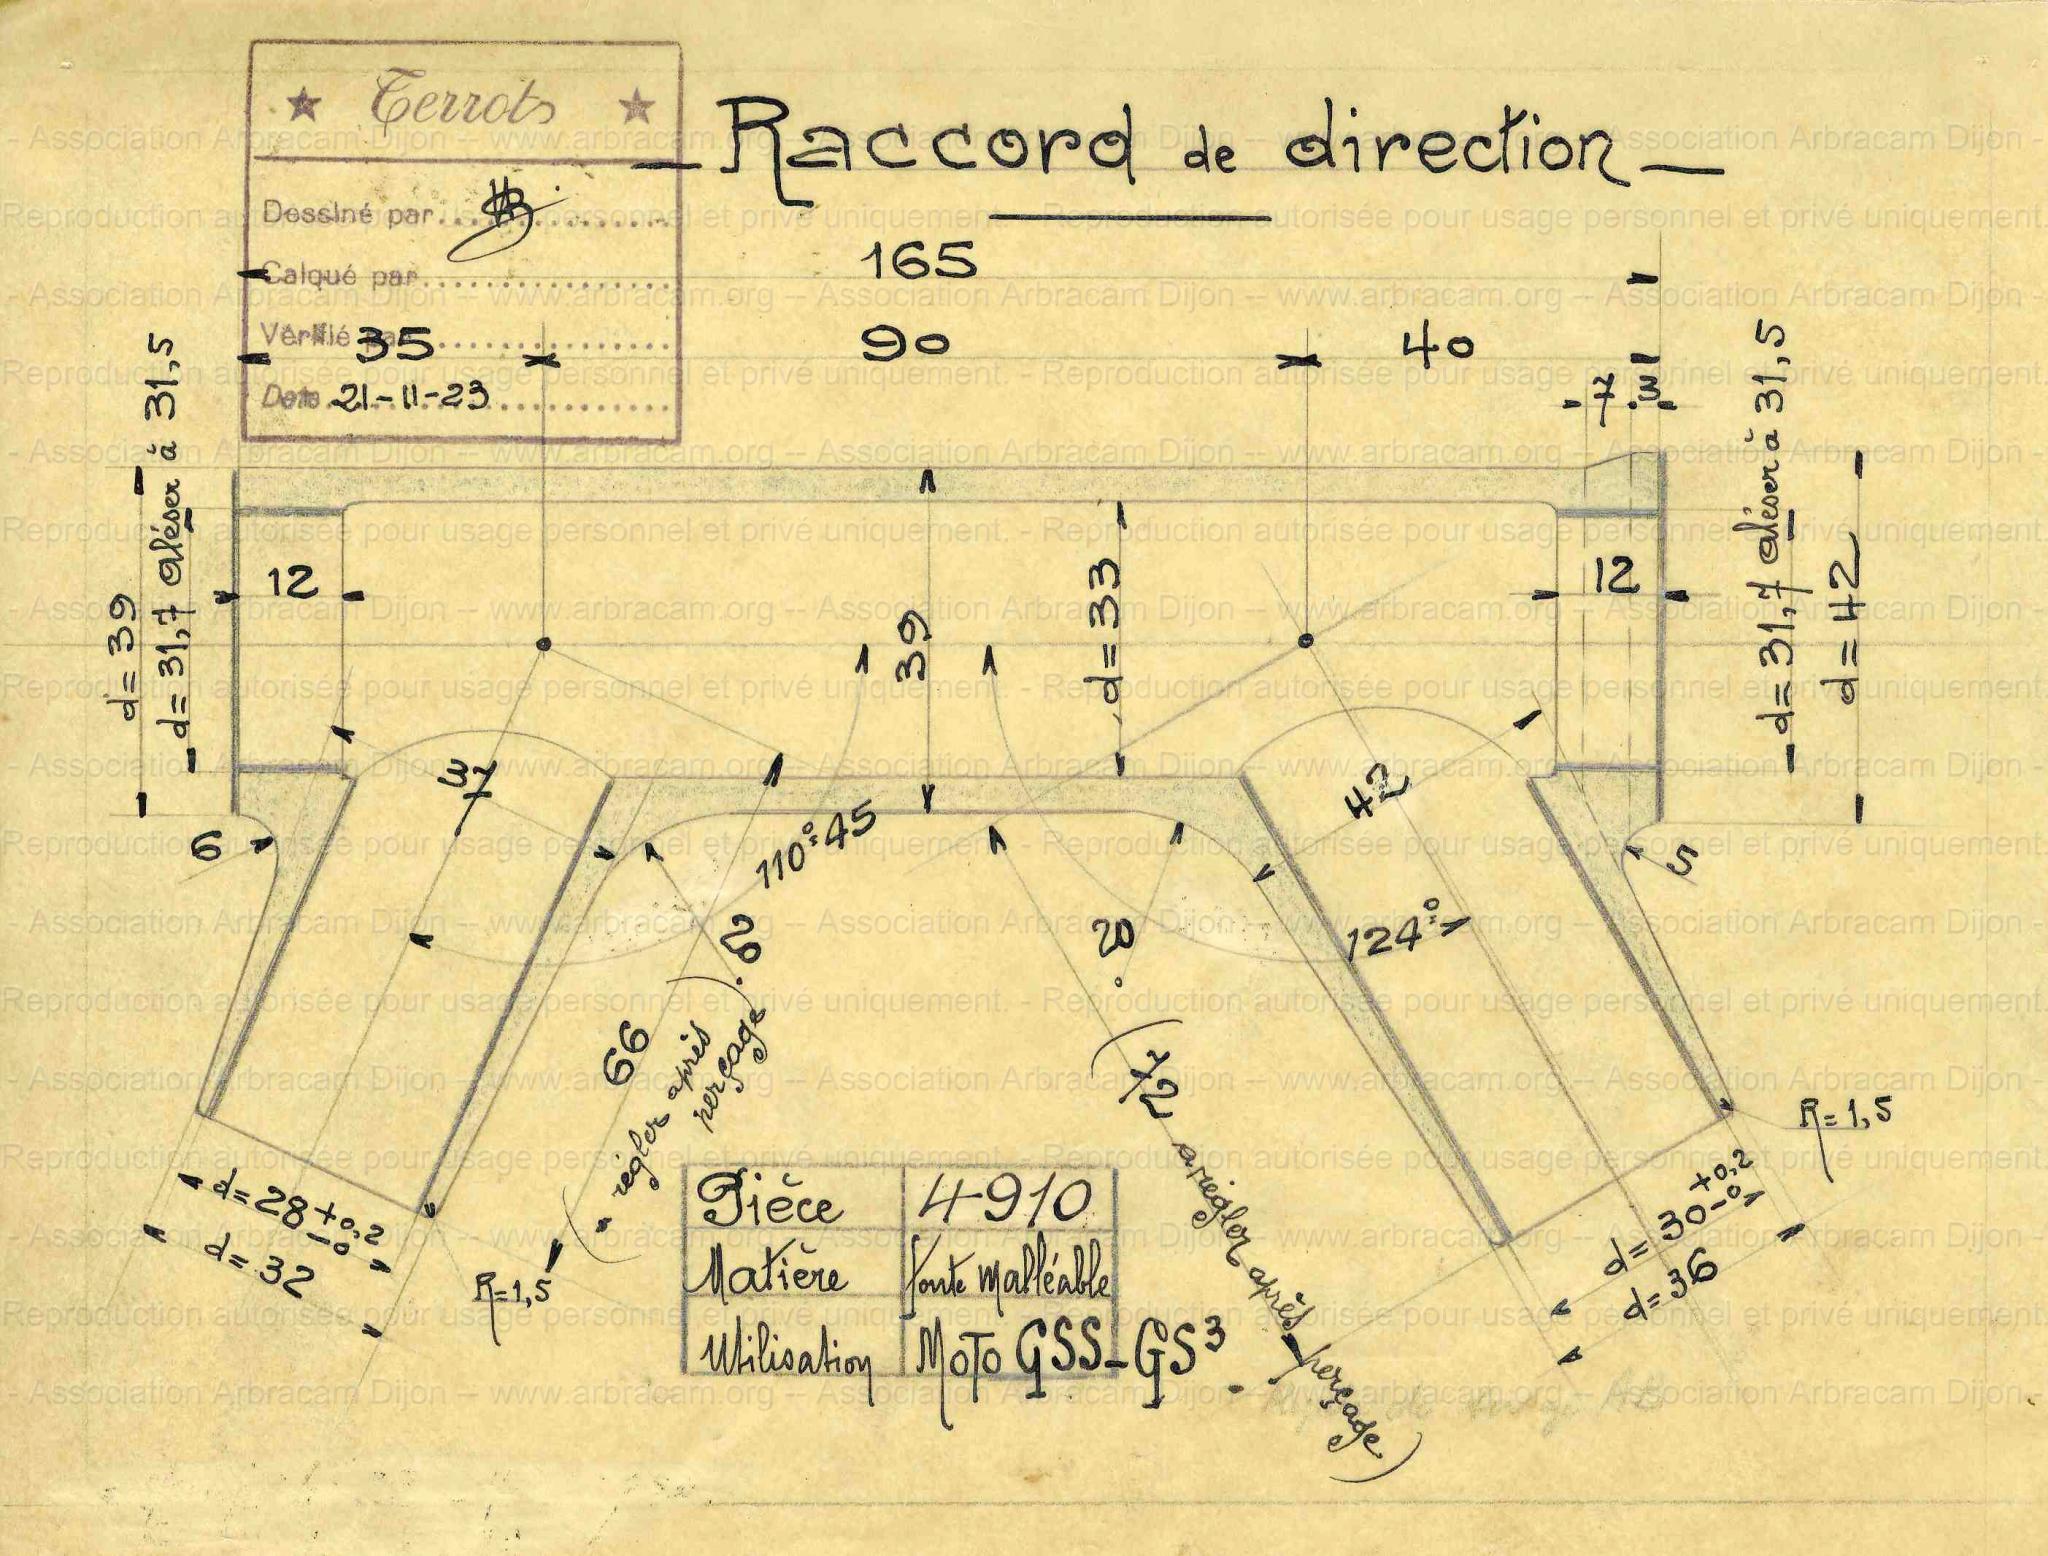 Terrot
Raccord de direction
Dessiné par
Calqué par
Vérifié par
Date 21-11-23
165
35
90
40
7
3
d=39
d=31,7 aléser à 31,5
12
39
d=33
12
d=31,7 aléser à 31,5
d=42
6
37
110°45
42
5
124°
20
20
66
(à régler après
perçage)
72
(à régler après perçage)
R=1,5
d=28 +0,2
-0
d=32
R=1,5
d=30 +0,2
-0
d=36
Pièce 4910
Matière fonte malléable
Utilisation Moto GSS-GS3
- Association Arbracam Dijon – www.arbracam.org – Association Arbracam Dijon – www.arbracam.org – Association Arbracam Dijon -
Reproduction autorisée pour usage personnel et privé uniquement. - Reproduction autorisée pour usage personnel et privé uniquement.